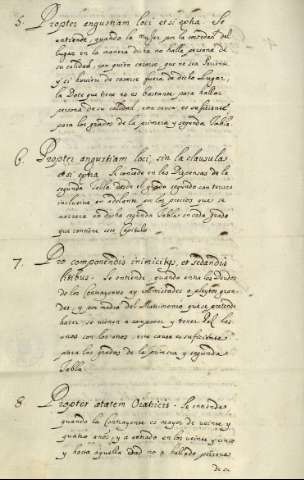 5. Propter angustiam loci, et si extra. Se
entiende, quando la Muger por la cortedad del
Lugar en la manera dicha no halla persona de
su calidad, con quien casarse, que no sea Pariente
y si huviere de casarse fuera de dicho Lugar,
la Dote que tiene no es bastante para hallar
persona de su calidad, esta causa es suficiente
para los grados de la primera y segunda tabla
6. Propter angustiam loci, sin la clausula
et si extra. Se concede en las Dispensas de la
segunda tabla desde el grado segundo con tercero
inclusive en adelante, en los precios que se
notaran en dicha segunda tabla en cada grado
que contiene este Capitulo
7. Pro componendis inimicitijs, et sedandis
litibus. Se entiende quando entre los Deudos
de los Contrayentes ay Amistades o pleytos gran-
des, y por medio del Matrimonio que se pretende
hacer, se vienen a componer, y tener Paz los
unos con los otros, esta causa es suficiente
para los grados de la primera y segunda
tabla
8 Propter ætatem Oratricis. Se entiende
quando la Contrayente es mayor de veinte y
quatro años, y a entrado en los veinte y cinco
y hasta aquella edad no a hallado persona
de su